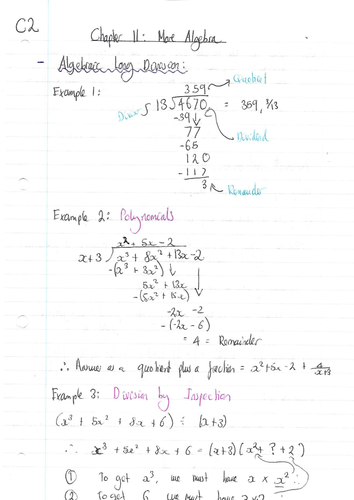 C2
Chapter 11: More Algebra
- Algebraic Long Division:
Example 1:
359 Quotient
Divisor 13 4670 = 359, 3/13
-39
77 Dividend
-65
120
-117
3 Remainder
Example 2: Polynomials
x² + 5x - 2
x+3 x³ + 8x² + 13x - 2
-(x³ + 3x²)
5x² + 13x
-(5x² + 15x)
-2x - 2
-(-2x - 6)
= 4 = Remainder
∴ Answer as a quotient plus a fraction = x²+5x-2 + 4/x+3
Example 3: Division by Inspection
(x³ + 5x² + 8x + 6) ÷ (x+3)
∴ x³ + 5x² + 8x + 6 = (x+3)(x² + ? + 2)
① To get x³, we must have x × x²
② To get 6, we must have 3×2